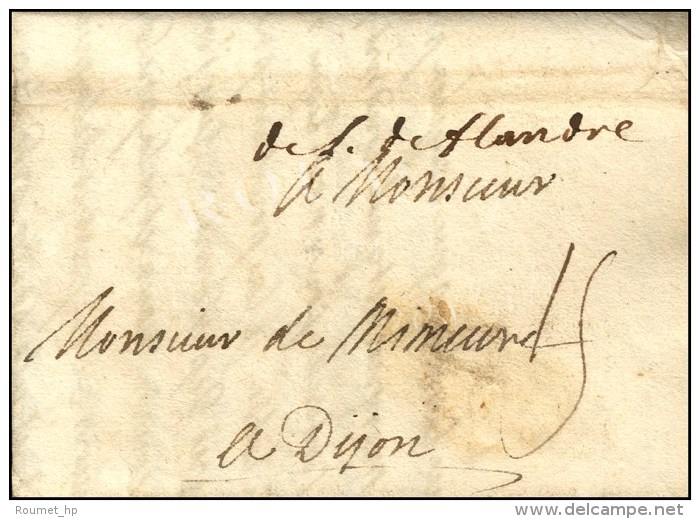 de L. de flandre
A Monsieur
Monsieur de Mimeure
15
a Dijon
Roumet_hp
delcampe.net